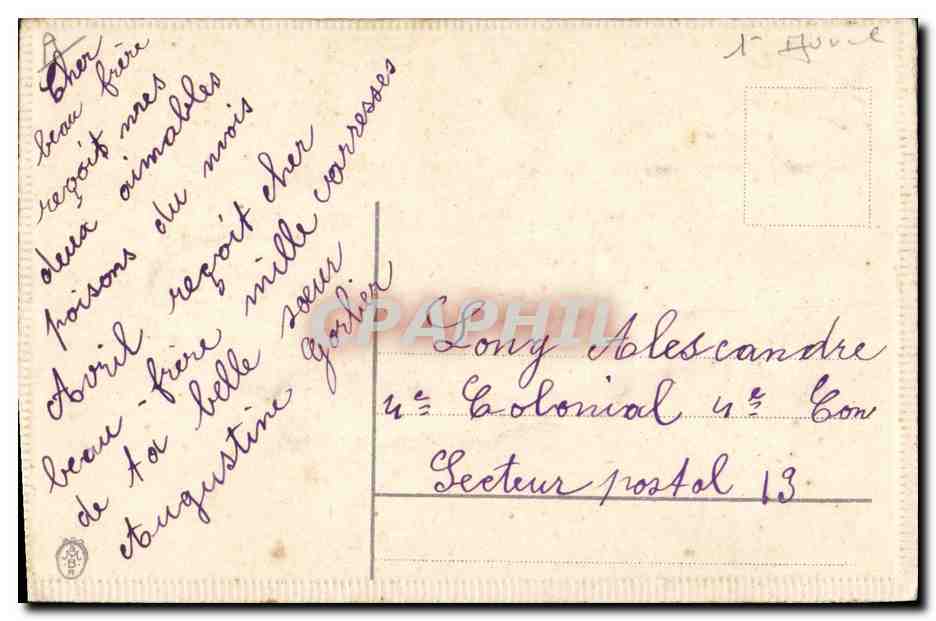 1r Avril
Cher
beau frère
reçoit mes
deux aimables
poisons du mois
Avril reçoit cher
beau-frère mille carresses
de ta belle sœur
Augustine Gorlier
CPAPHIL
Long Alescandre
4e Colonial 4e Con
Secteur postal 13